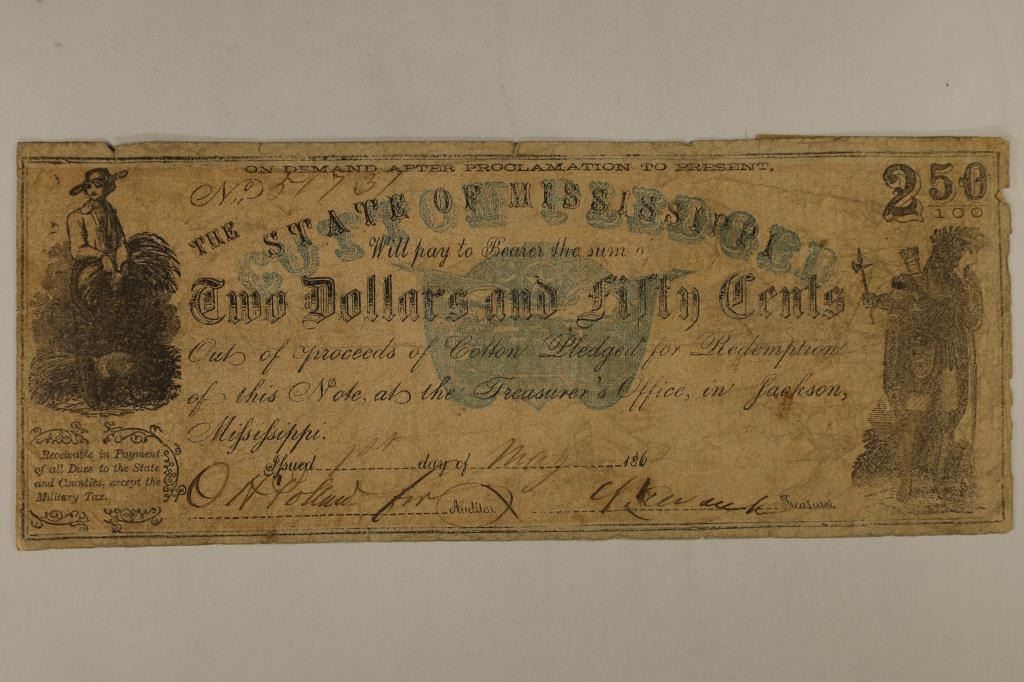 ON DEMAND AFTER PROCLAMATION TO PRESENT,
No 51731
2 50/100
THE STATE OF MISSISSIPPI
COTTON PLEDGED
Will pay to Bearer the sum of
Two Dollars and Fifty Cents
Out of proceeds of Cotton Pledged for Redemption
of this Note, at the Treasurer's Office, in Jackson,
Mississippi.
Issued 1st day of May 186
Receivable in Payment
of all Dues to the State
and Counties, except the
Military Tax.
for Auditor.
Treasurer.